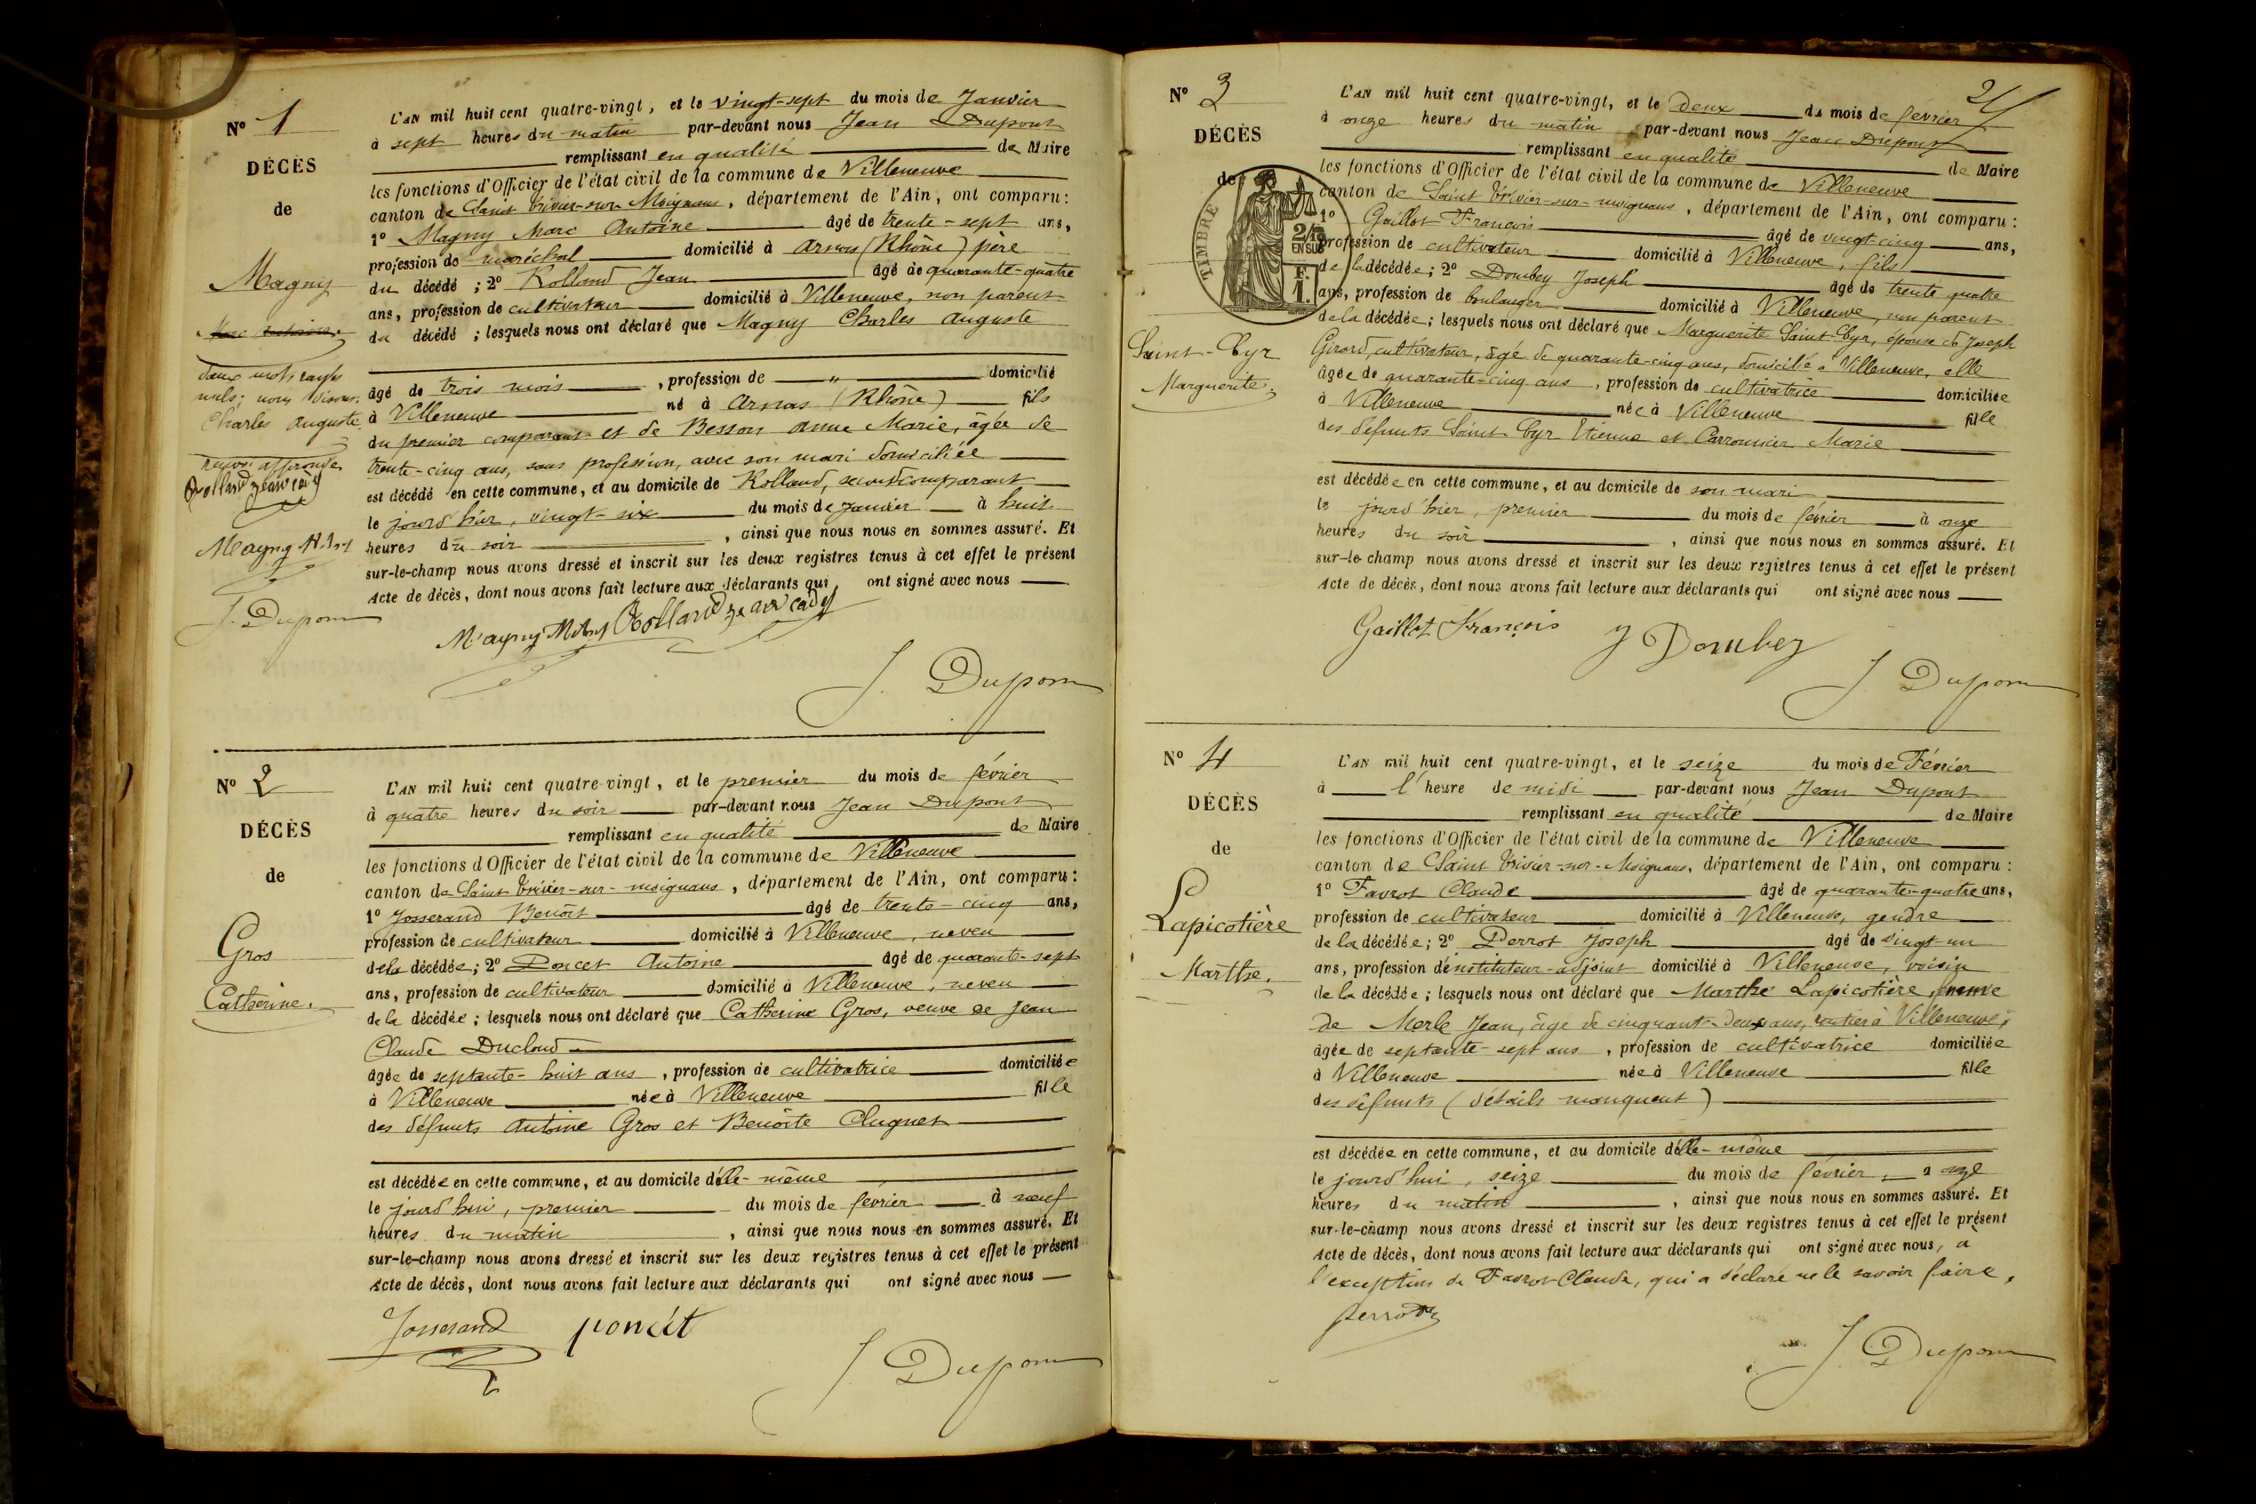 N° 1
DÉCÈS
de
Magny
Marc Antoine
deux mots rayés
nuls; nous disons:
Charles Auguste
renvoi approuvé
Magny
J. Dupont
L'AN mil huit cent quatre-vingt, et le vingt-sept du mois de Janvier
à sept heures du matin par-devant nous Jean Dupont
remplissant en qualité de Maire
les fonctions d'Officier de l'état civil de la commune de Villeneuve
canton de Saint Trivier-sur-Moignans, département de l'Ain, ont comparu:
1° Magny Marc Antoine âgé de trente-sept ans,
profession de maréchal domicilié à Arnas (Rhône) père
du décédé ; 2° Rolland Jean âgé de quarante-quatre
ans, profession de cultivateur domicilié à Villeneuve, non parent
du décédé ; lesquels nous ont déclaré que Magny Charles Auguste
âgé de trois mois , profession de " domicilié
à Villeneuve né à Arnas (Rhône) fils
du premier comparant et de Besson Anne Marie, âgée de
trente-cinq ans, sans profession, avec son mari domiciliée
est décédé en cette commune, et au domicile de Rolland, second comparant
le jourd'hier, vingt-six du mois de janvier à huit
heures du soir , ainsi que nous nous en sommes assuré. Et
sur-le-champ nous avons dressé et inscrit sur les deux registres tenus à cet effet le présent
Acte de décès, dont nous avons fait lecture aux déclarants qui ont signé avec nous
Magny Rolland jean
J. Dupont
N° 2
DÉCÈS
de
Gros
Catherine.
L'AN mil huit cent quatre-vingt, et le premier du mois de février
à quatre heures du soir par-devant nous Jean Dupont
remplissant en qualité de Maire
les fonctions d'Officier de l'état civil de la commune de Villeneuve
canton de Saint Trivier-sur-moignans, département de l'Ain, ont comparu:
1° Josserand Benoît âgé de trente-cinq ans,
profession de cultivateur domicilié à Villeneuve, neveu
de la décédée; 2° Poncet Antoine âgé de quarante-sept
ans, profession de cultivateur domicilié à Villeneuve, neveu
de la décédée ; lesquels nous ont déclaré que Catherine Gros, veuve de Jean
Claude Ducloud
âgée de septante-huit ans , profession de cultivatrice domiciliée
à Villeneuve née à Villeneuve fille
des défunts Antoine Gros et Benoîte Clugnet
est décédée en cette commune, et au domicile d'elle-même
le jourd'hui, premier du mois de février à neuf
heures du matin , ainsi que nous nous en sommes assuré. Et
sur-le-champ nous avons dressé et inscrit sur les deux registres tenus à cet effet le présent
Acte de décès, dont nous avons fait lecture aux déclarants qui ont signé avec nous
Josserand poncét
J. Dupont
N° 3
DÉCÈS
de
TIMBRE
2/10
EN SUS
F.
1.
Saint-Cyr
Marguerite.
L'AN mil huit cent quatre-vingt, et le deux du mois de février
à onze heures du matin par-devant nous Jean Dupont
remplissant en qualité de Maire
les fonctions d'Officier de l'état civil de la commune de Villeneuve
canton de Saint Trivier-sur-moignans, département de l'Ain, ont comparu:
1° Gaillot François âgé de vingt-cinq ans,
profession de cultivateur domicilié à Villeneuve, fils
de la décédée; 2° Dombey Joseph âgé de trente quatre
ans, profession de boulanger domicilié à Villeneuve, non parent
de la décédée; lesquels nous ont déclaré que Marguerite Saint-Cyr, épouse de Joseph
Girard, cultivateur, âgé de quarante-cinq ans, domicilié à Villeneuve, elle
âgée de quarante-cinq ans , profession de cultivatrice domiciliée
à Villeneuve née à Villeneuve fille
des défunts Saint-Cyr Etienne et Carronnier Marie
est décédée en cette commune, et au domicile de son mari
le jourd'hier, premier du mois de février à onze
heures du soir , ainsi que nous nous en sommes assuré. Et
sur-le-champ nous avons dressé et inscrit sur les deux registres tenus à cet effet le présent
Acte de décès, dont nous avons fait lecture aux déclarants qui ont signé avec nous
Gaillot François J Dombey
J. Dupont
N° 4
DÉCÈS
de
Lapicotière
Marthe.
L'AN mil huit cent quatre-vingt, et le seize du mois de Février
à l'heure de midi par-devant nous Jean Dupont
remplissant en qualité de Maire
les fonctions d'Officier de l'état civil de la commune de Villeneuve
canton de Saint Trivier-sur-Moignans, département de l'Ain, ont comparu:
1° Favrot Claude âgé de quarante-quatre ans,
profession de cultivateur domicilié à Villeneuve, gendre
de la décédée; 2° Perrot Joseph âgé de vingt-un
ans, profession d'instituteur-adjoint domicilié à Villeneuve, voisin
de la décédée; lesquels nous ont déclaré que Marthe Lapicotière,
de Merle Jean, âgé de cinquante-deux ans, rentier à Villeneuve,
âgée de septante-sept ans , profession de cultivatrice domiciliée
à Villeneuve née à Villeneuve fille
des défunts (détails manquent)
est décédée en cette commune, et au domicile d'elle-même
le jourd'hui, seize du mois de février, à onze
heures du matin , ainsi que nous nous en sommes assuré. Et
sur-le-champ nous avons dressé et inscrit sur les deux registres tenus à cet effet le présent
Acte de décès, dont nous avons fait lecture aux déclarants qui ont signé avec nous, à
l'exception de Favrot Claude, qui a déclaré ne le savoir faire.
Perrot
J. Dupont